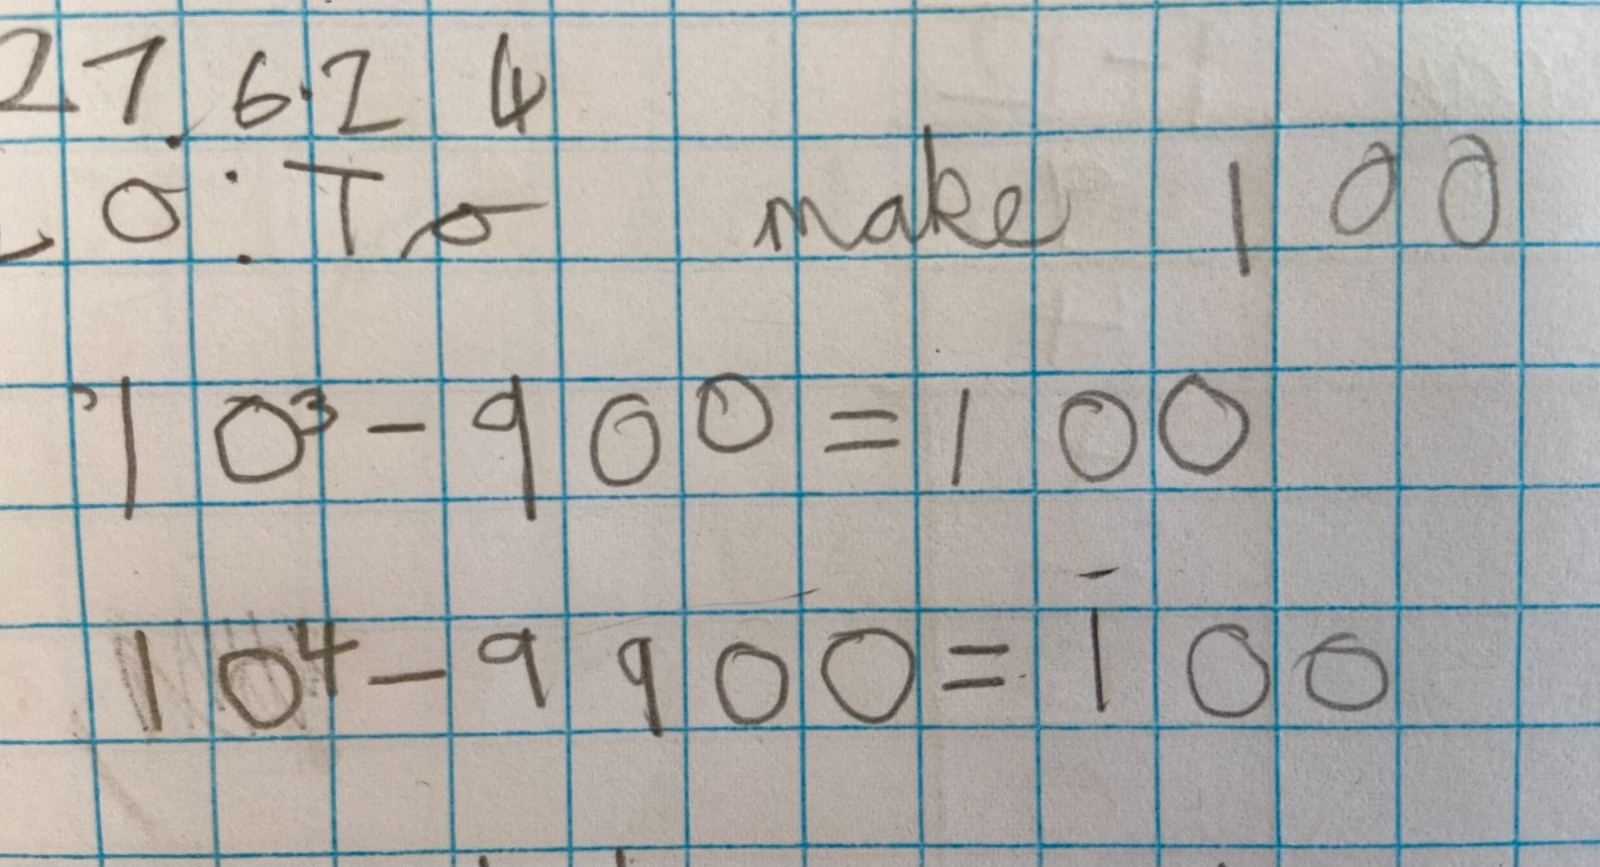 27.6.24
LO: To make 100
10³-900=100
10⁴-9900=100